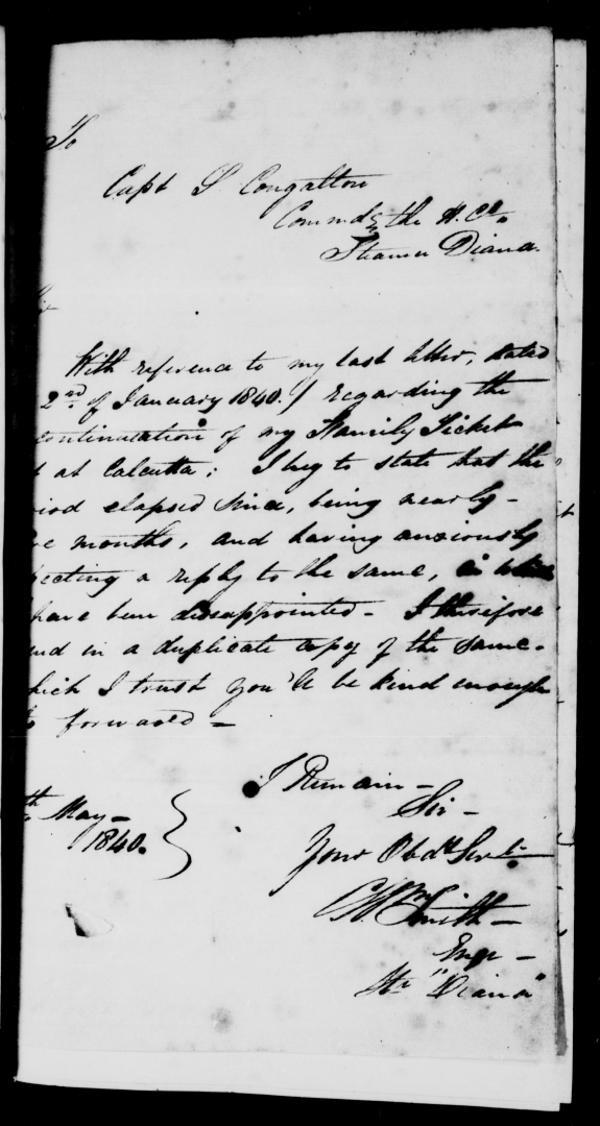 To
Capt S Congalton
Commdg the H. Cos
Steamer Diana.
With reference to my last letter, dated
2nd of January 1840. / regarding the
continuation of my Family Ticket
at Calcutta; I beg to state that the
iod elapsed since, being nearly -
months, and having anxiously
pecting a reply to the same, in which
have been dissappointed - I therefore
nd in a duplicate copy of the same -
hich I trust you'll be kind enough
to forward -
I Remain -
Sir -
th May -
1840.
Your Obdt Servt
Wm Smith -
Engr -
Str "Diana"